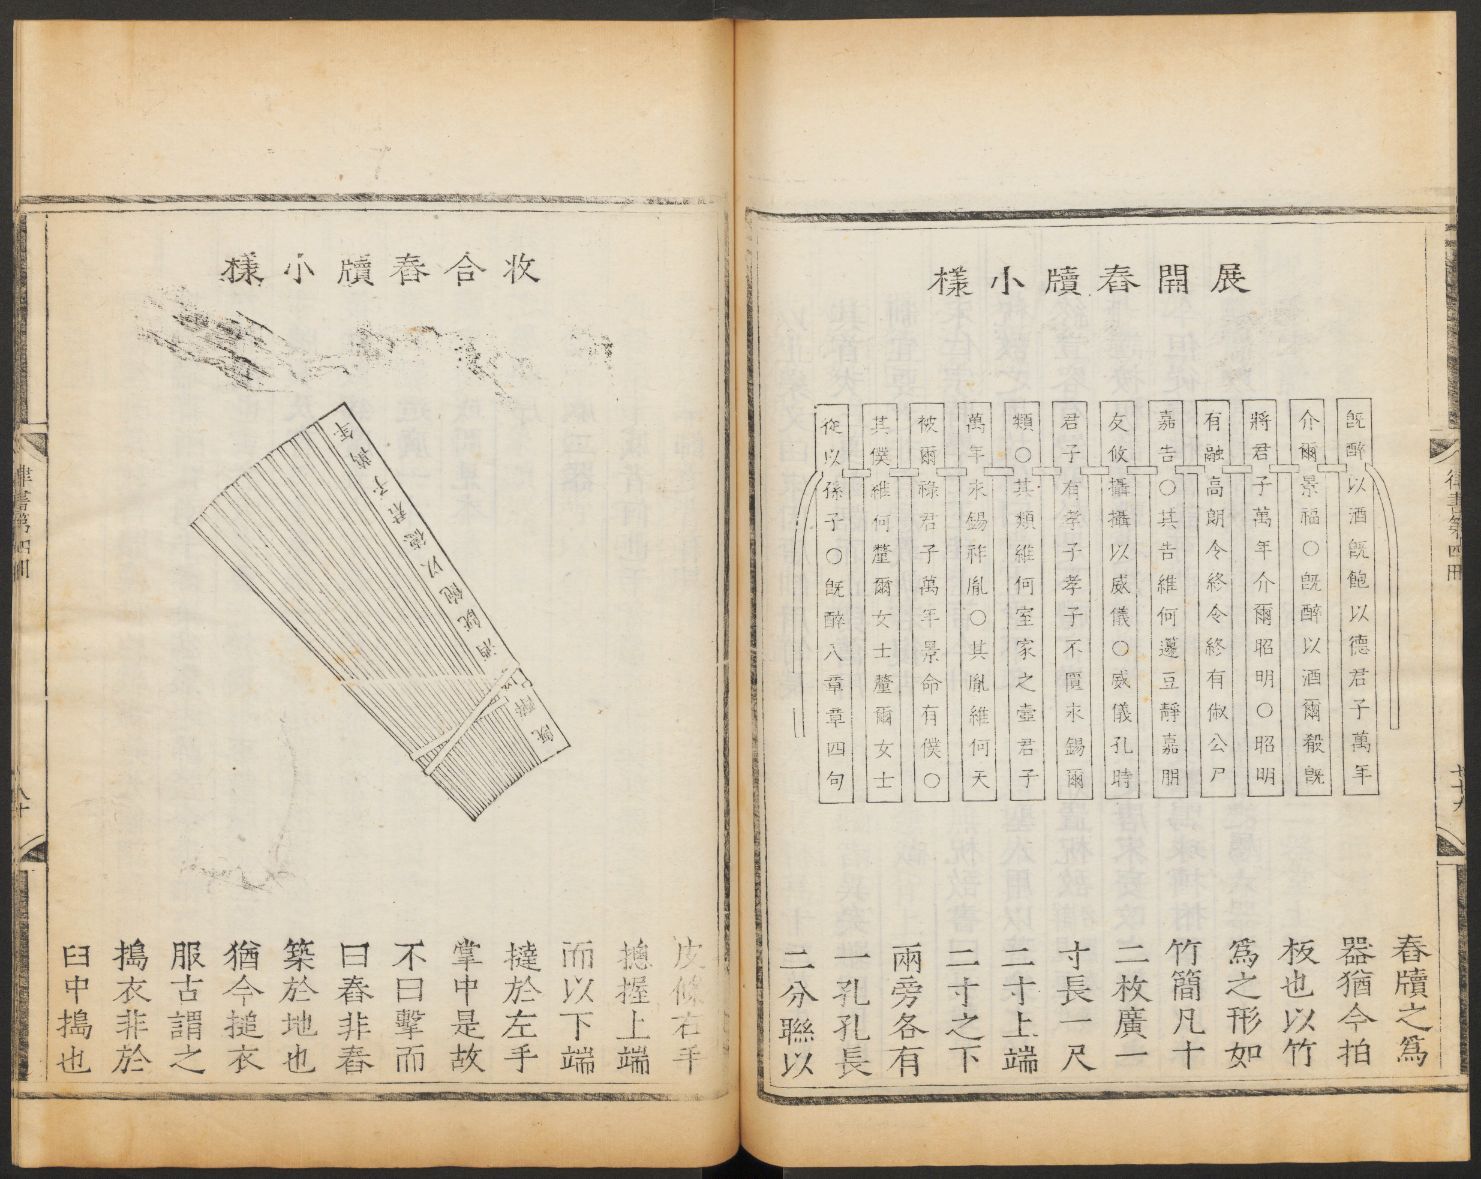 律書第四冊
七十九
展開舂牘小樣
既醉以酒既飽以德君子萬年
介爾景福○既醉以酒爾殽既
將君子萬年介爾昭明○昭明
有融高朗令終令終有俶公尸
嘉告○其告維何籩豆靜嘉朋
友攸攝攝以威儀○威儀孔時
君子有孝子孝子不匱永錫爾
類○其類維何室家之壼君子
萬年永錫祚胤○其胤維何天
被爾祿君子萬年景命有僕○
其僕維何釐爾女士釐爾女士
從以孫子○既醉八章章四句
舂牘之爲
器猶今拍
板也以竹
爲之形如
竹簡凡十
二枚廣一
寸長一尺
二寸上端
二寸之下
兩旁各有
一孔孔長
二分聯以
收合舂牘小樣
既醉以酒既飽以德君子萬年
皮條右手
摠握上端
而以下端
撻於左手
掌中是故
不曰擊而
曰舂非舂
築於地也
猶今搥衣
服古謂之
搗衣非於
臼中搗也
律書第四冊
八十